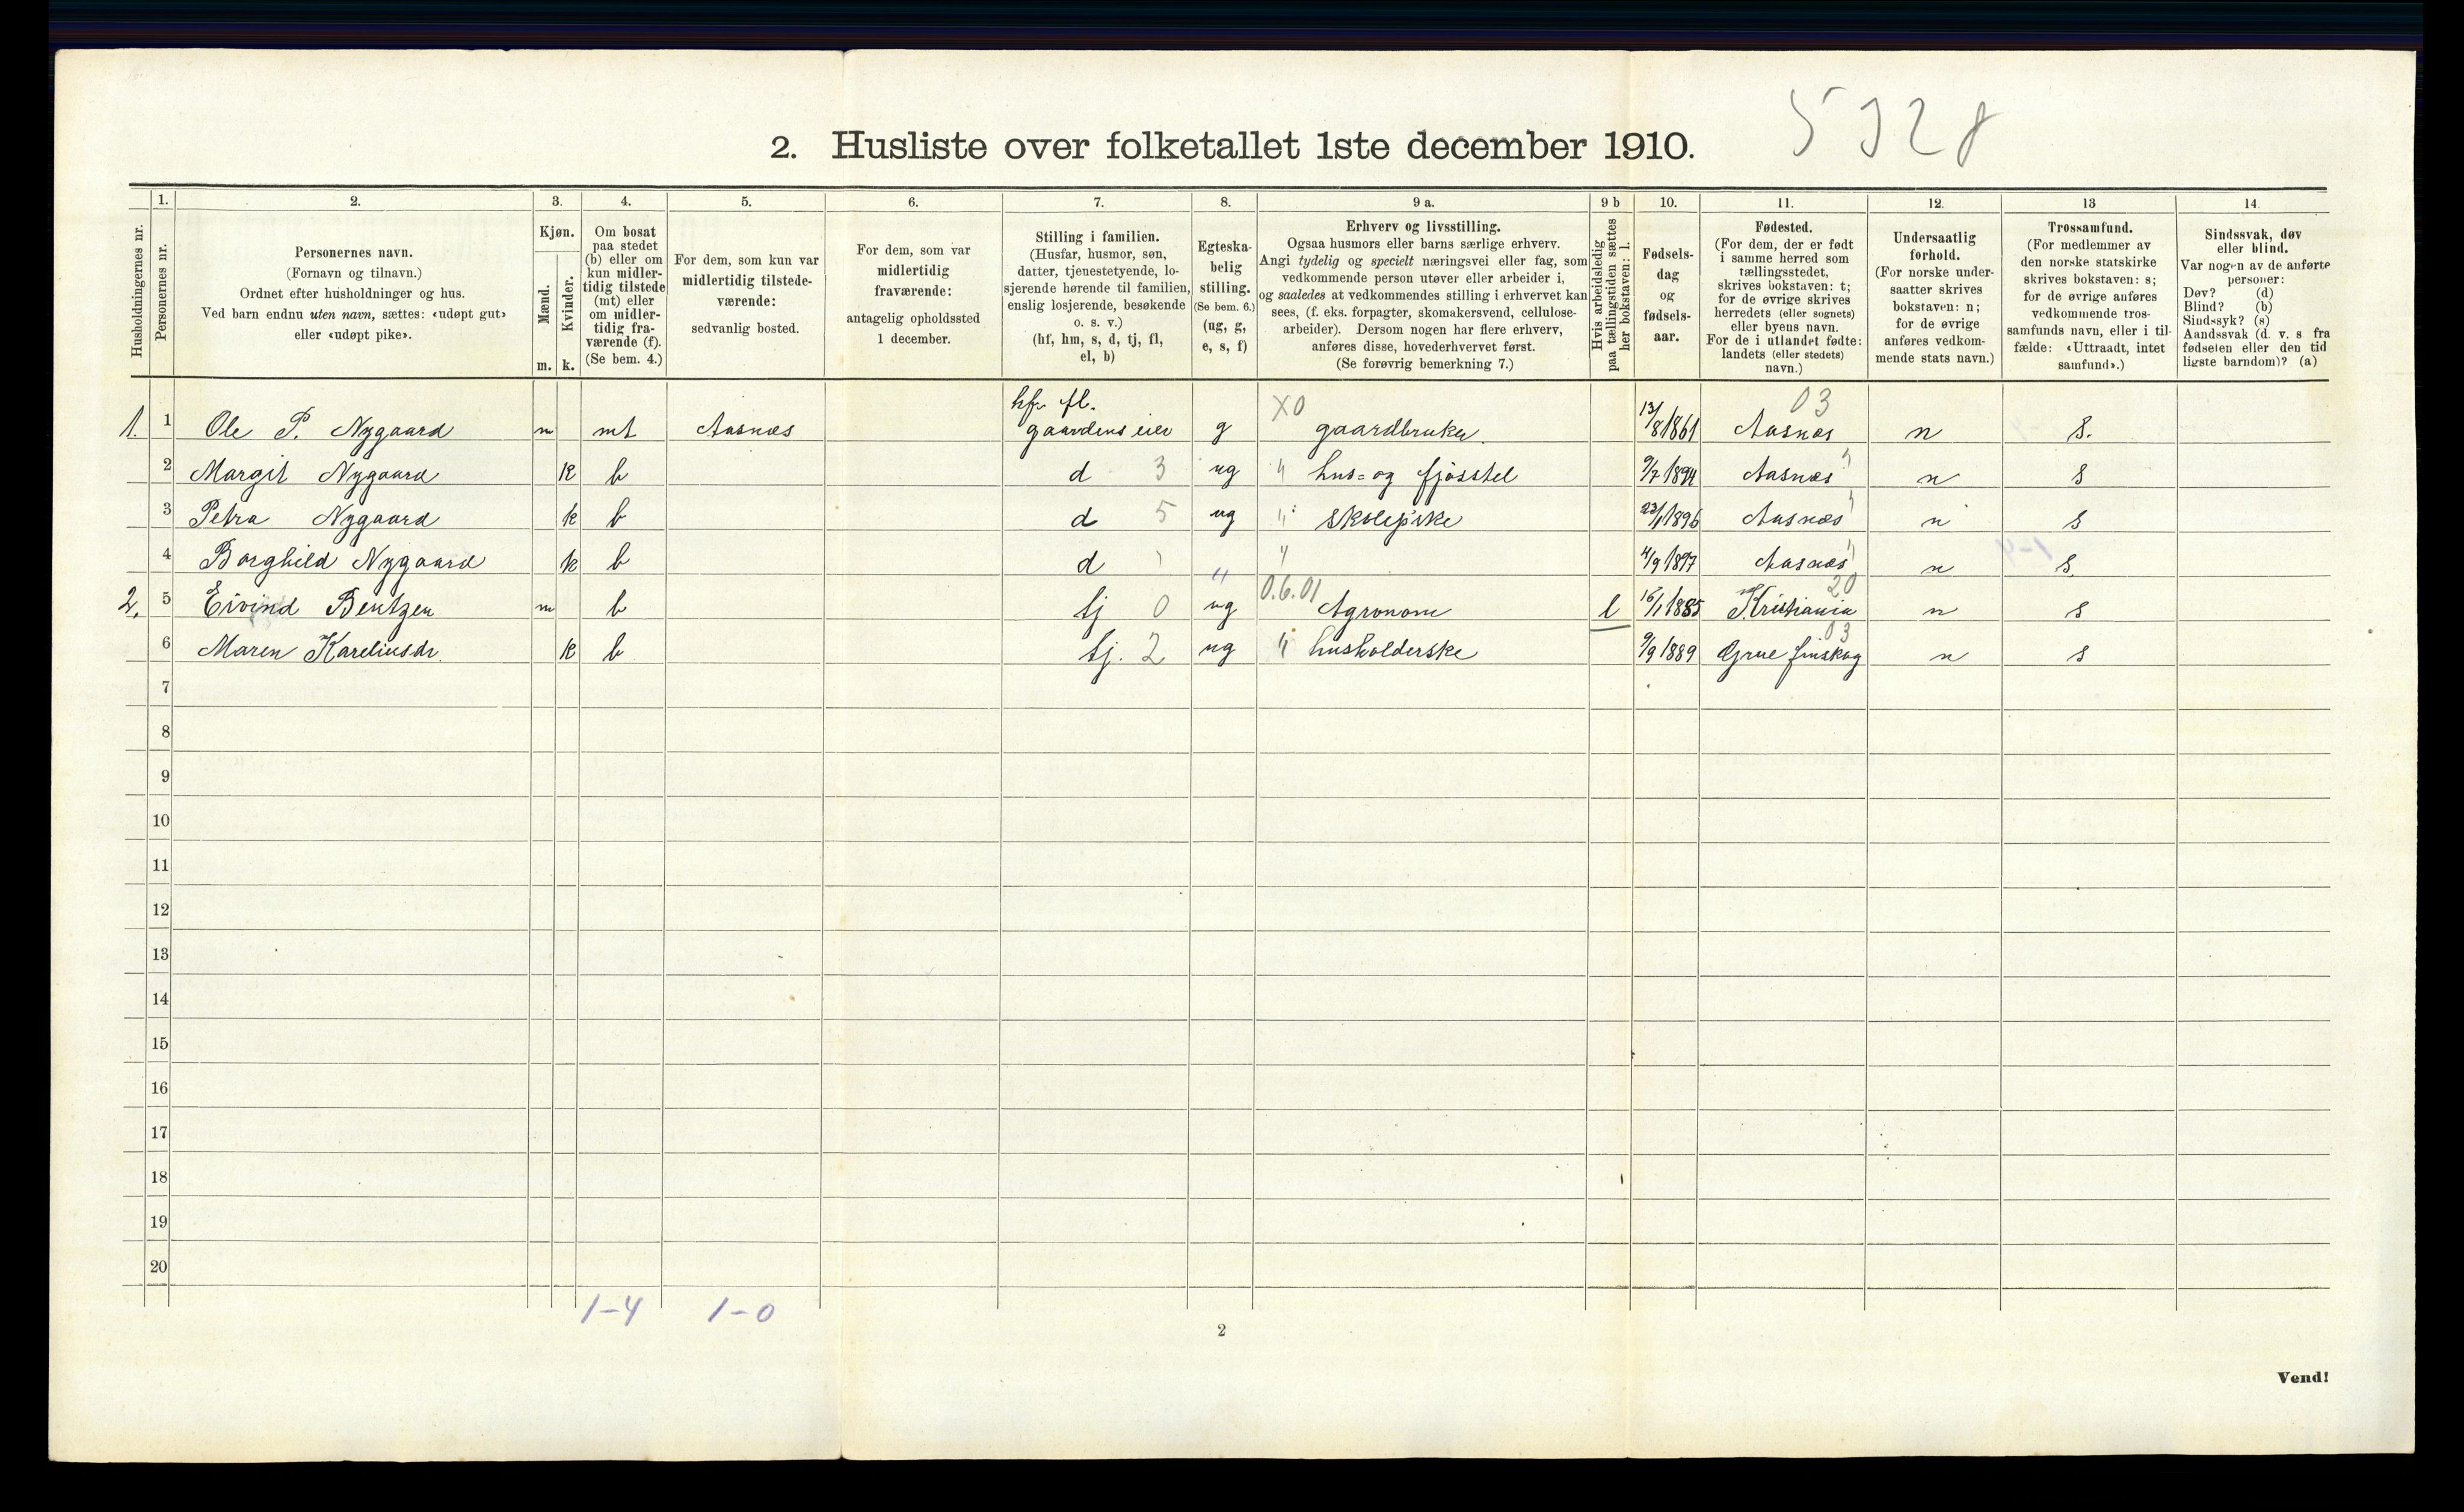 5328
2. Husliste over folketallet 1ste december 1910.
Husholdningernes nr.
1. Personernes nr.
2. Personernes navn.
(Fornavn og tilnavn.)
Ordnet efter husholdninger og hus.
Ved barn endnu uten navn, sættes: «udøpt gut»
eller «udøpt pike».
3. Kjøn.
Mænd. m.
Kvinder. k.
4. Om bosat
paa stedet
(b) eller om
kun midler-
tidig tilstede
(mt) eller
om midler-
tidig fra-
værende (f).
(Se bem. 4.)
5. For dem, som kun var
midlertidig tilstede-
værende:
sedvanlig bosted.
6. For dem, som var
midlertidig
fraværende:
antagelig opholdssted
1 december.
7. Stilling i familien.
(Husfar, husmor, søn,
datter, tjenestetyende, lo-
sjerende hørende til familien,
enslig losjerende, besøkende
o. s. v.)
(hf, hm, s, d, tj, fl,
el, b)
8. Egteska-
belig
stilling.
(Se bem. 6.)
(ug, g,
e, s, f)
9 a. Erhverv og livsstilling.
Ogsaa husmors eller barns særlige erhverv.
Angi tydelig og specielt næringsvei eller fag, som
vedkommende person utøver eller arbeider i,
og saaledes at vedkommendes stilling i erhvervet kan
sees, (f. eks. forpagter, skomakersvend, cellulose-
arbeider). Dersom nogen har flere erhverv,
anføres disse, hovederhvervet først.
(Se forøvrig bemerkning 7.)
9 b Hvis arbeidsledig
paa tællingstiden sættes
her bokstaven: l.
10. Fødsels-
dag
og
fødsels-
aar.
11. Fødested.
(For dem, der er født
i samme herred som
tællingsstedet,
skrives bokstaven: t;
for de øvrige skrives
herredets (eller sognets)
eller byens navn.
For de i utlandet fødte:
landets (eller stedets)
navn.)
12. Undersaatlig
forhold.
(For norske under-
saatter skrives
bokstaven: n;
for de øvrige
anføres vedkom-
mende stats navn.)
13 Trossamfund.
(For medlemmer av
den norske statskirke
skrives bokstaven: s;
for de øvrige anføres
vedkommende tros-
samfunds navn, eller i til-
fælde: «Uttraadt, intet
samfund».)
14. Sindssvak, døv
eller blind.
Var nogen av de anførte
personer:
Døv? (d)
Blind? (b)
Sindssyk? (s)
Aandssvak (d. v. s fra
fødselen eller den tid
ligste barndom)? (a)
hf. fl. X0 03
1. 1 Ole P. Nygaard m mt Aasnæs gaardens eier g gaardbruker. 13/8 1861 Aasnæs n S.
2 Margit Nygaard k b d 3 ug " hus= og fjøsstel 9/7 1894 Aasnæs " n S
3 Petra Nygaard k b d 5 ug " skolepike 23/1 1896 Aasnæs " n S
4 Borghild Nygaard k b d " " 4/9 1897 Aasnæs " n S. 1-4
2. 5 Eivind Bentzen m b tj 0 ug 0.6.01 Agronom l 15/1 1885 Kristiania 20 n S
6 Maren Kareliusdr. k b tj. 2 ug " husholderske 9/9 1889 Grue finskog 03 n S
7
8
9
10
11
12
13
14
15
16
17
18
19
20
1-4 1-0
2
Vend!